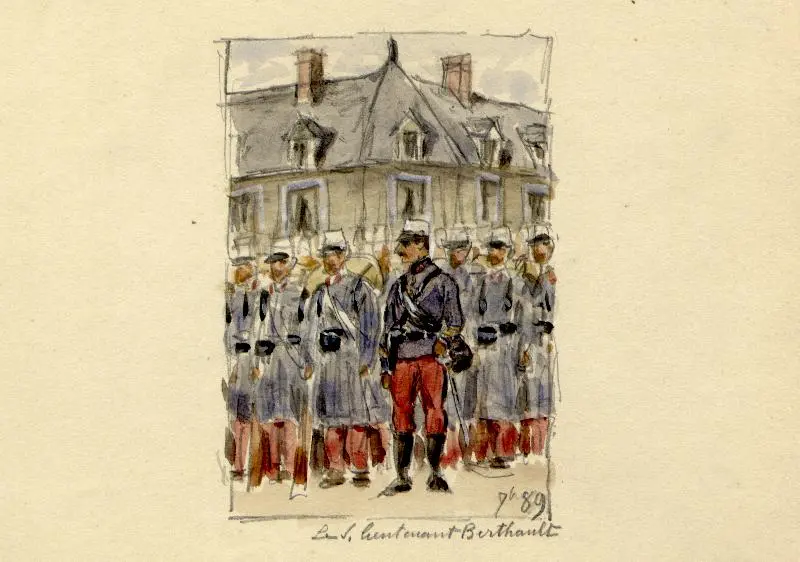 7b 89
Le S. lieutenant Berthault